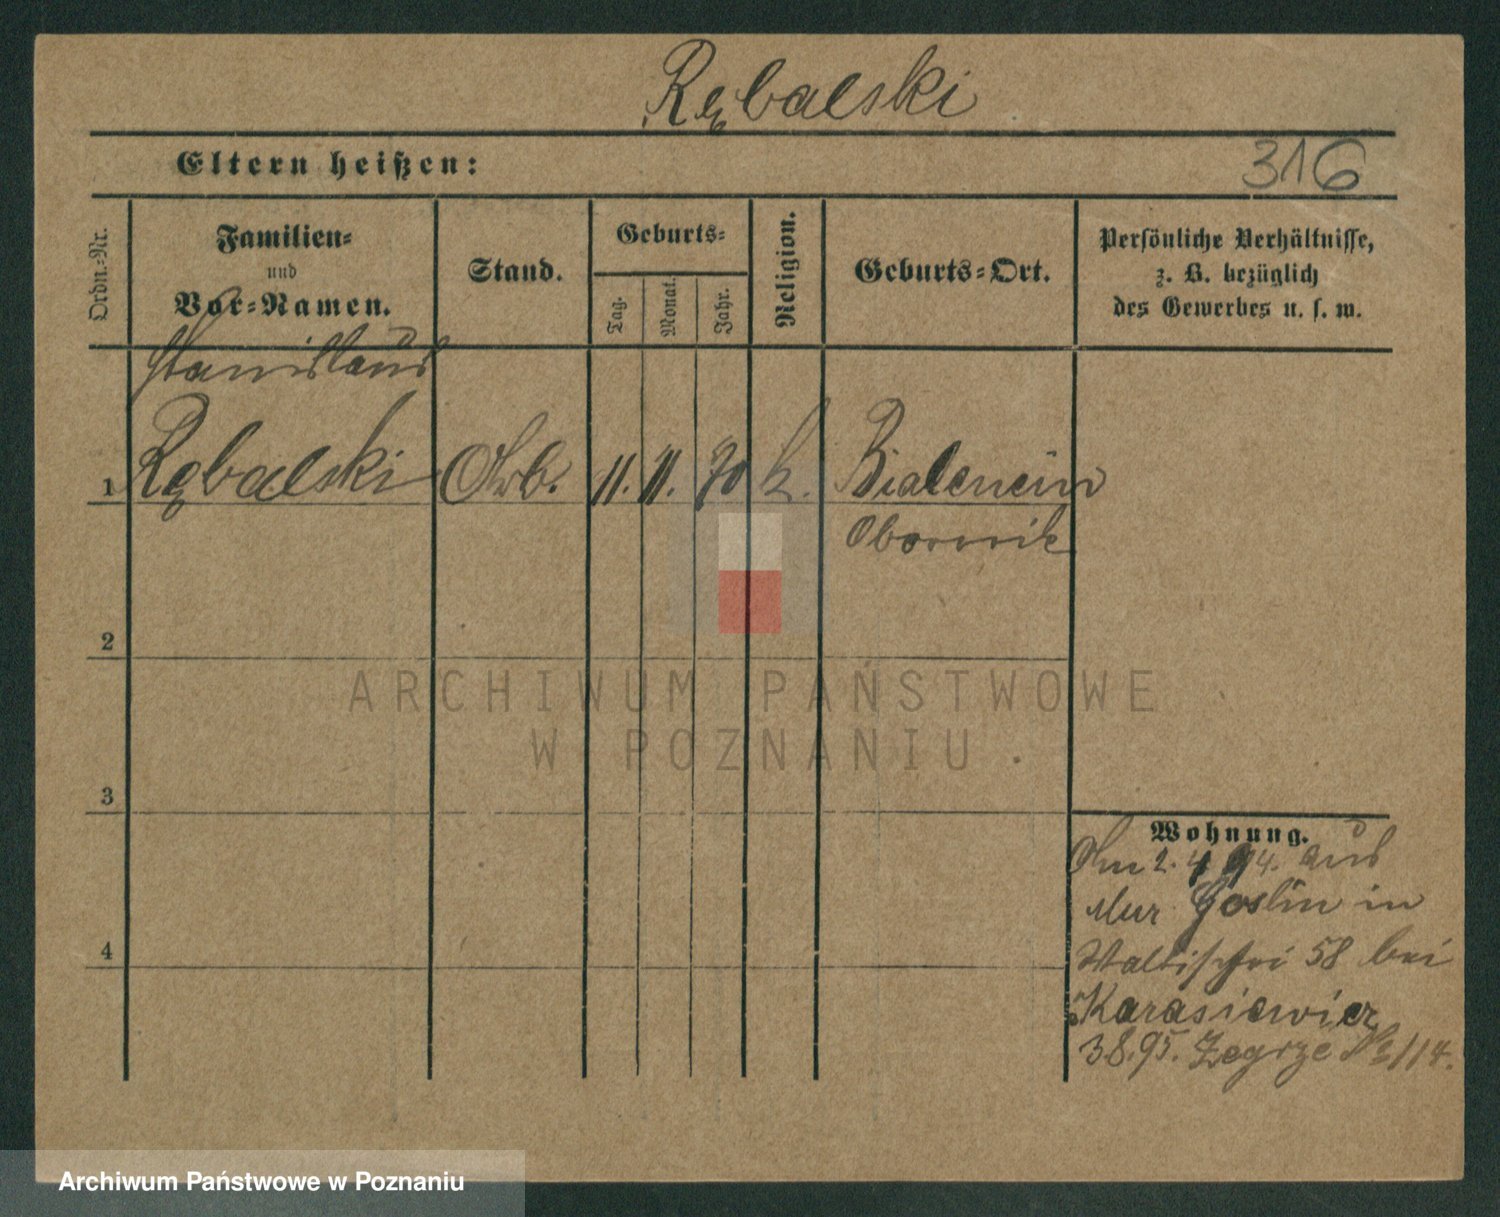 Rębalski
Eltern heißen:
316
Ordn.-Nr.
Familien-
und
Vor-Namen.
Stand.
Geburts-
Tag.
Monat.
Jahr.
Religion.
Geburts-Ort.
Persönliche Verhältnisse,
z. B. bezüglich
des Gewerbes u. s. w.
Stanislaus
1 Rębalski Arb. 11. 11. 70 k. Bialencin
Obornik
2
ARCHIWUM PAŃSTWOWE
W POZNANIU
3
Wohnung.
Am 2. 4. 94. aus
Mur Goslin in
Wallischei 58 bei
4
Karasiewicz
3.8.95. Zegrze № 114.
Archiwum Państwowe w Poznaniu